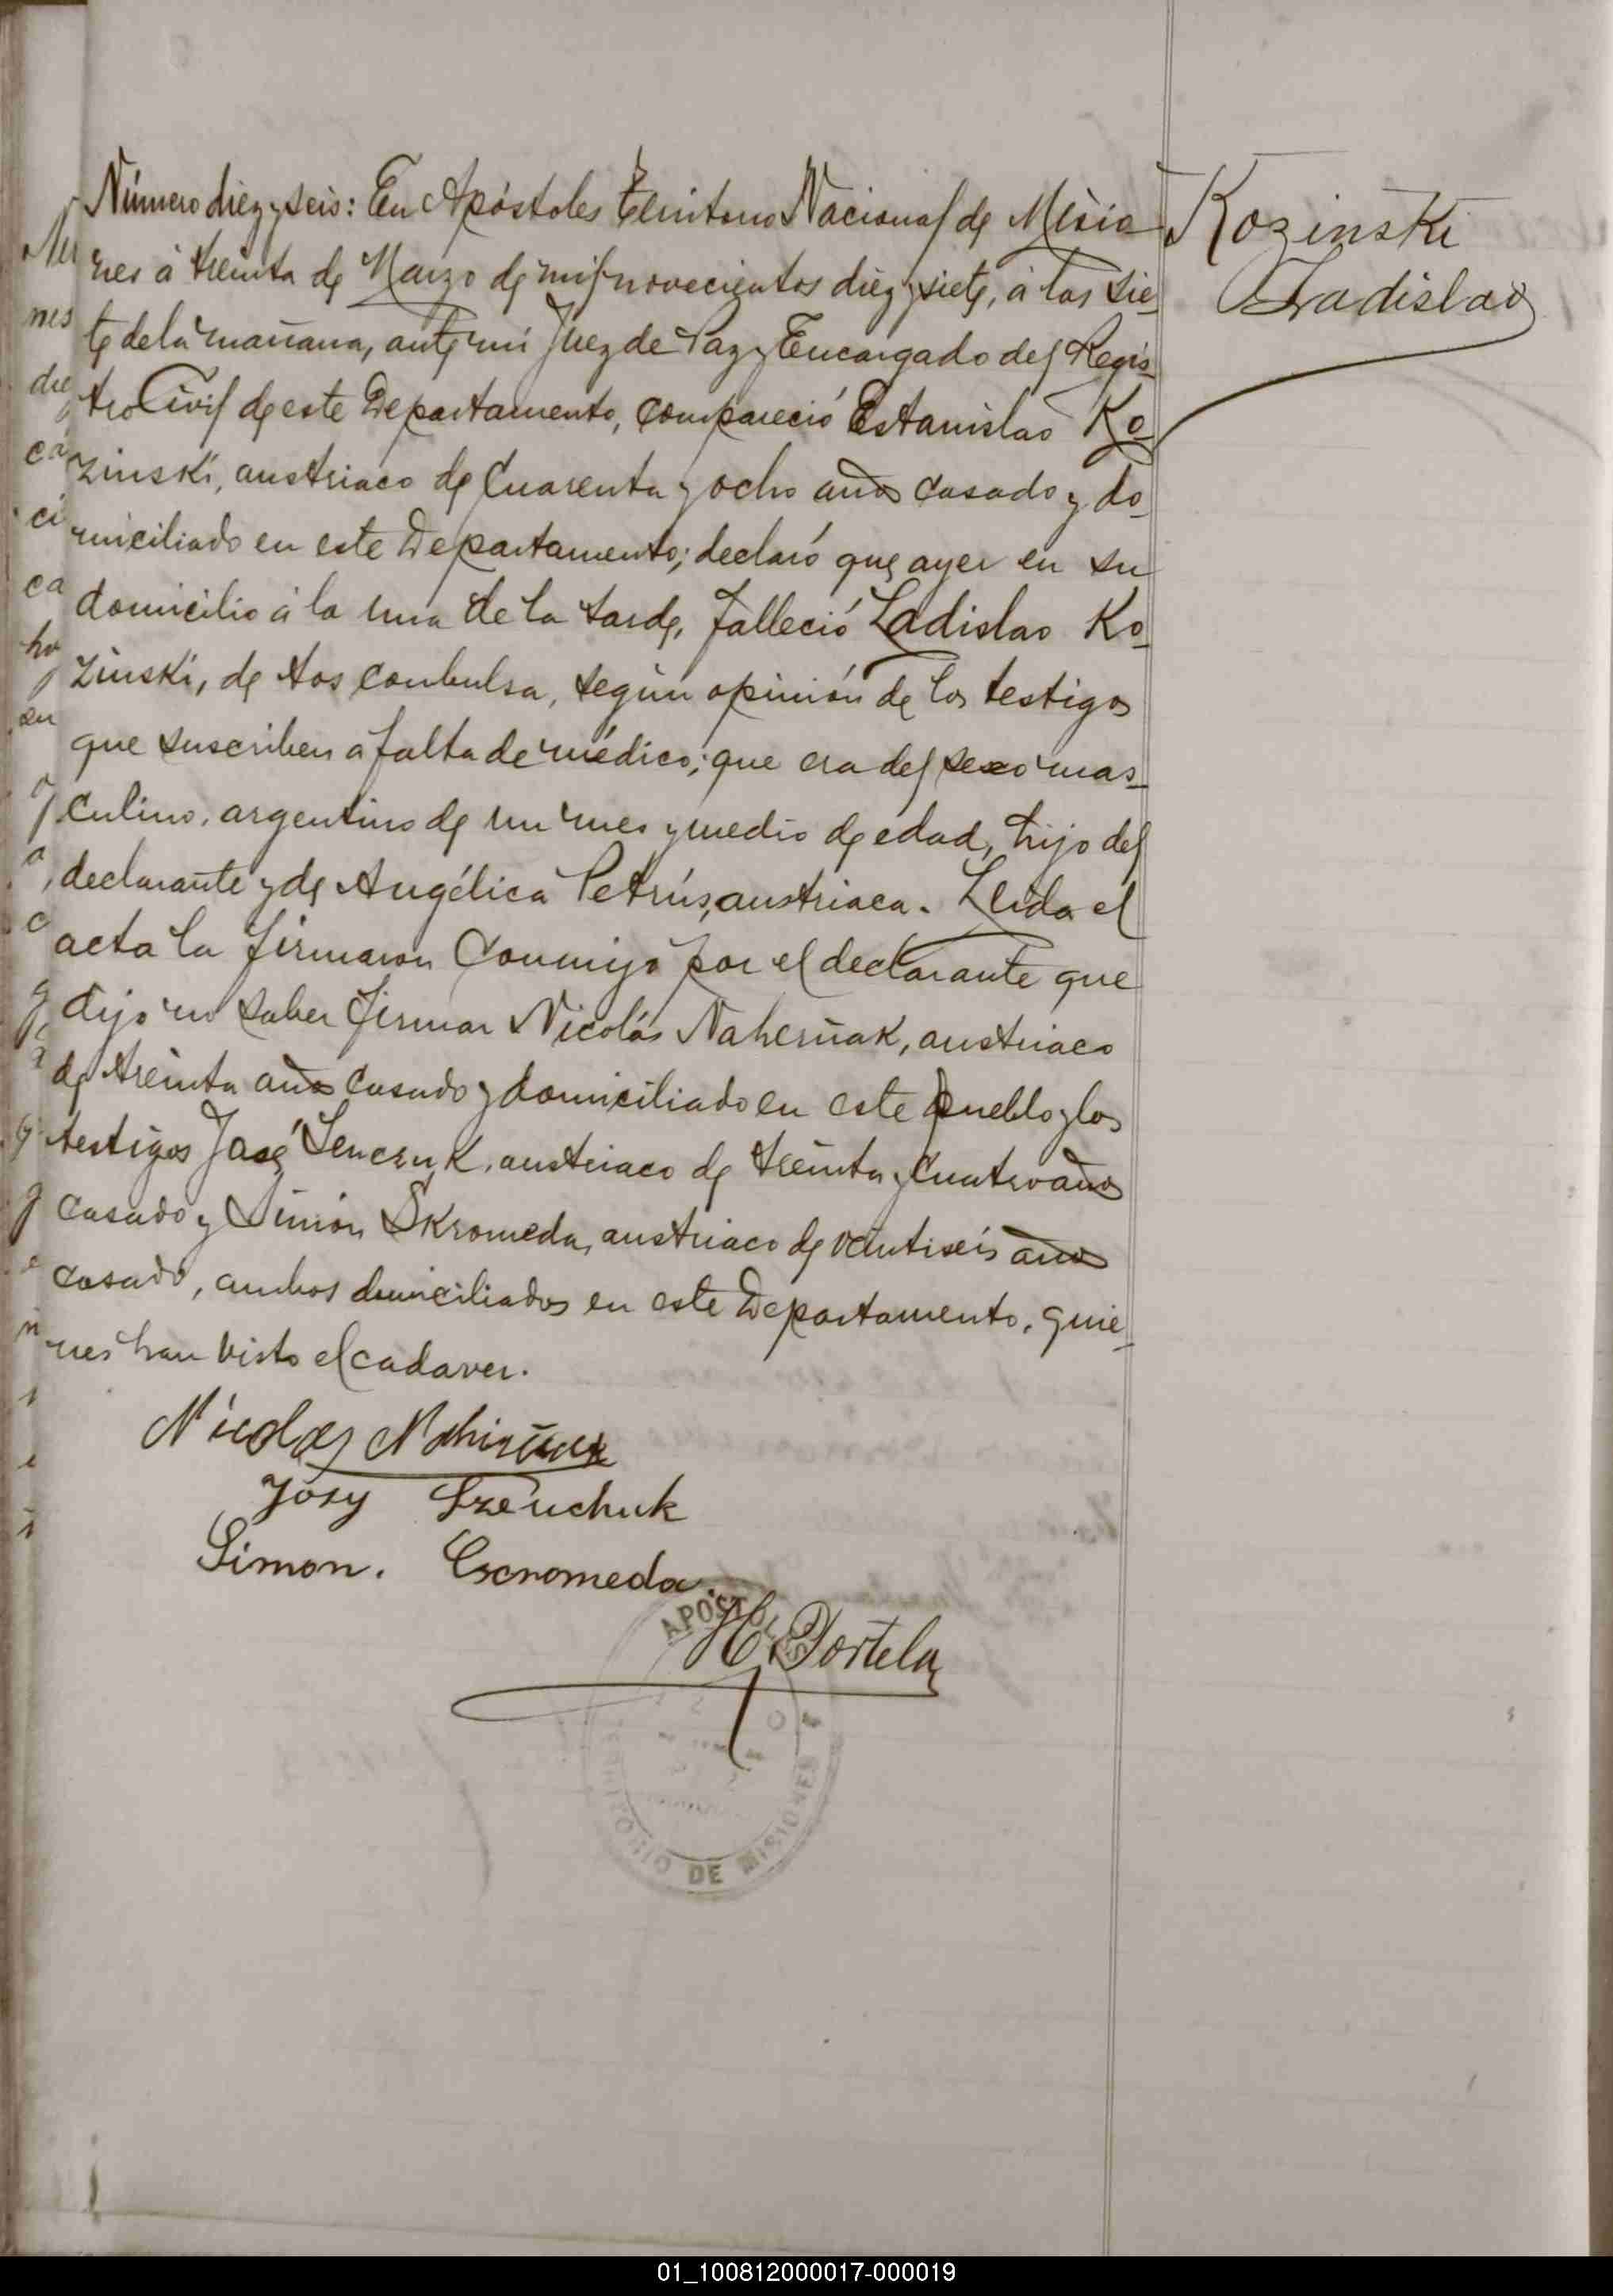 Número diez y seis: En Apóstoles Territorio Nacional de Misio
Kozinski
Ladislao
nes á treinta de Marzo de mil novecientos diez y siete, á las sie-
te de la mañana, ante mí Juez de Paz y Encargado del Regis-
tro Civil de este Departamento, compareció Estanislao Ko-
zinski, austriaco de cuarenta y ocho años casado y do-
miciliado en este Departamento; declaró que ayer en su
domicilio á la una de la tarde, falleció Ladislao Ko-
zinski, de tos conbulsa, según opinión de los testigos
que suscriben a falta de médico; que era del sexo mas-
culino, argentino de un mes y medio de edad, hijo del
declarante y de Angélica Petrús, austriaca. Leida el
acta la firmaron conmigo por el declarante que
dijo no saber firmar Nicolás Naherñak, austriaco
de treinta años casado y domiciliado en este pueblo y los
testigos José Senczuk, austriaco de treinta y cuatro años
casado y Simón Skromeda, austriaco de veintiseis años
casado, ambos domiciliados en este Departamento, quie-
nes han visto el cadaver.
Nicolas
Josy Szeuchuk
Simon. Escromeda.
H. Portela
APOSTOLES
TERRITORIO DE MISIONES
01_100812000017-000019